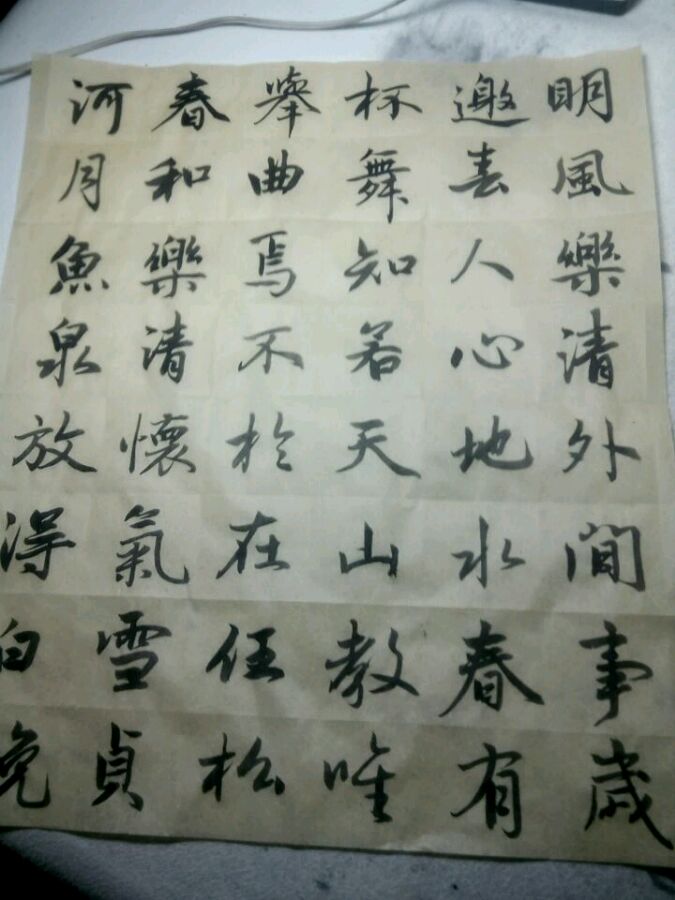 河春舉杯邀明
月和曲舞春風
魚樂焉知人樂
泉清不若心清
放懷於天地外
得氣在山水間
白雪任教春事
晚貞松唯有歲